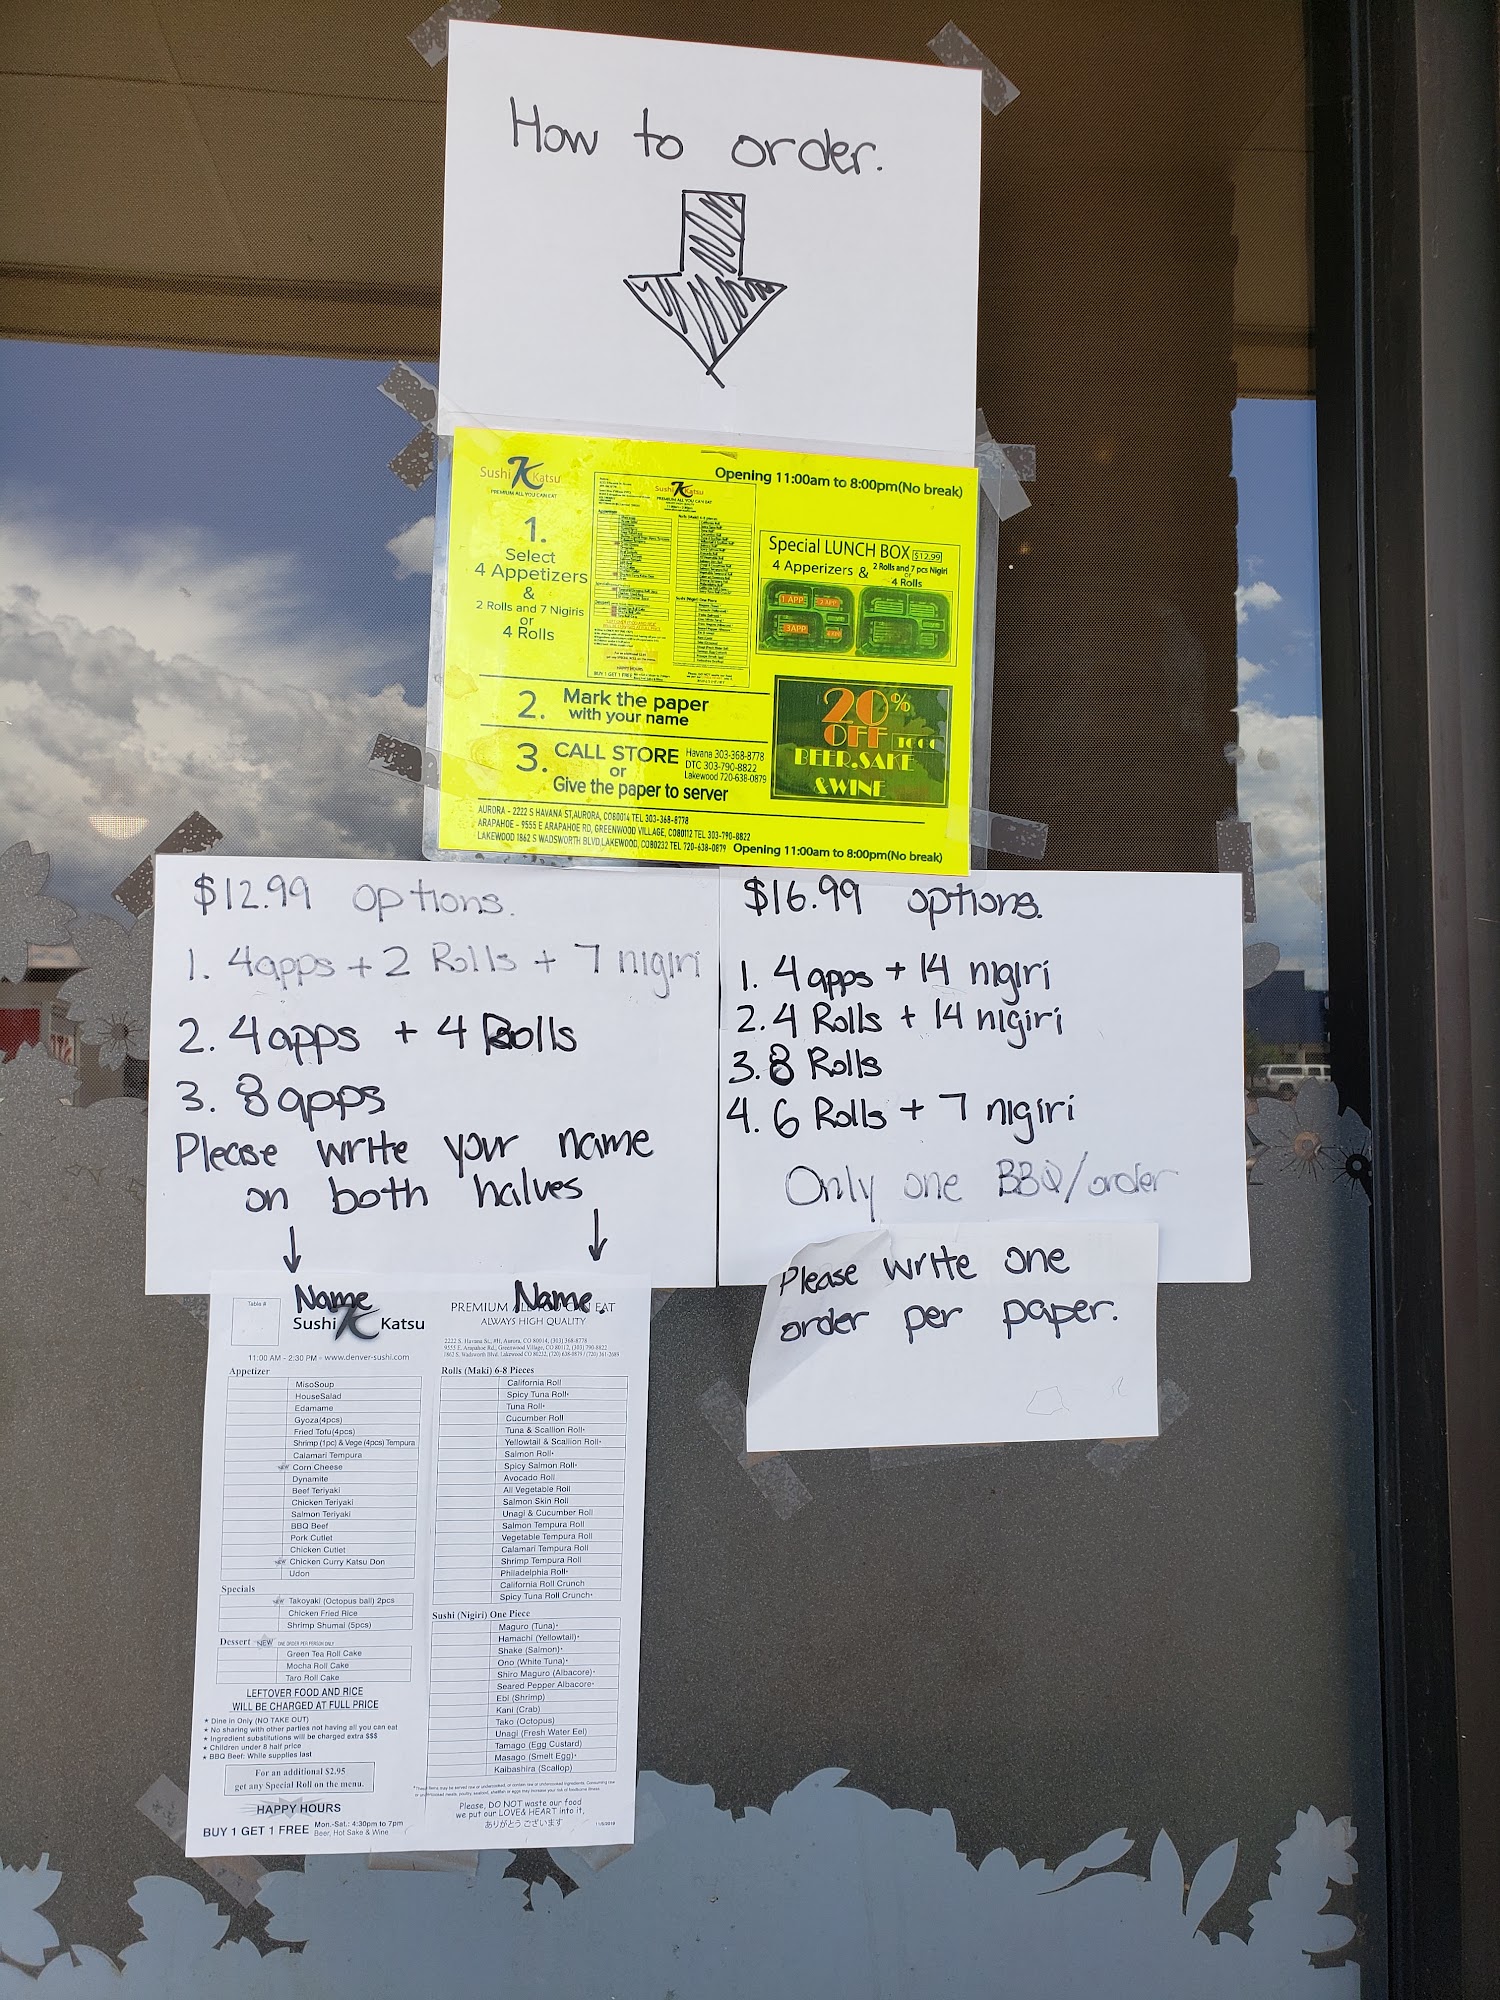 How to order.
Sushi K Katsu
PREMIUM ALL YOU CAN EAT
Opening 11:00am to 8:00pm(No break)
1.
Select
4 Appetizers
&
2 Rolls and 7 Nigiris
or
4 Rolls
Sushi K Katsu
PREMIUM ALL YOU CAN EAT
HAPPY HOURS
BUY 1 GET 1 FREE
Special LUNCH BOX $12.99
4 Apperizers & 2 Rolls and 7 pcs Nigiri
or
4 Rolls
1 APP 2 APP
3 APP 4 APP
2. Mark the paper
with your name
20%
OFF TO GO
BEER.SAKE
&WINE
3. CALL STORE
or
Give the paper to server
Havana 303-368-8778
DTC 303-790-8822
Lakewood 720-638-0879
AURORA - 2222 S HAVANA ST,AURORA, CO80014 TEL 303-368-8778
ARAPAHOE - 9555 E ARAPAHOE RD, GREENWOOD VILLAGE, CO80112 TEL 303-790-8822
LAKEWOOD 1862 S WADSWORTH BLVD,LAKEWOOD, CO80232 TEL 720-638-0879
Opening 11:00am to 8:00pm(No break)
$12.99 options.
1. 4apps + 2 Rolls + 7 nigiri
2. 4apps + 4 Rolls
3. 8 apps
Please write your name
on both halves
$16.99 options.
1. 4 apps + 14 nigiri
2. 4 Rolls + 14 nigiri
3. 8 Rolls
4. 6 Rolls + 7 nigiri
Only one BBQ/order
Please write one
order per paper.
Name Name.
Table #
Sushi K Katsu
11:00 AM - 2:30 PM - www.denver-sushi.com
Appetizer
MisoSoup
HouseSalad
Edamame
Gyoza(4pcs)
Fried Tofu(4pcs)
Shrimp (1pc) & Vege (4pcs) Tempura
Calamari Tempura
NEW Corn Cheese
Dynamite
Beef Teriyaki
Chicken Teriyaki
Salmon Teriyaki
BBQ Beef
Pork Cutlet
Chicken Cutlet
NEW Chicken Curry Katsu Don
Udon
Specials
NEW Takoyaki (Octopus ball) 2pcs
Chicken Fried Rice
Shrimp Shumai (5pcs)
Dessert NEW ONE ORDER PER PERSON ONLY
Green Tea Roll Cake
Mocha Roll Cake
Taro Roll Cake
LEFTOVER FOOD AND RICE
WILL BE CHARGED AT FULL PRICE
★ Dine in Only (NO TAKE OUT)
★ No sharing with other parties not having all you can eat
★ Ingredient substitutions will be charged extra $$$
★ Children under 8 half price
★ BBQ Beef: While supplies last
For an additional $2.95
get any Special Roll on the menu.
HAPPY HOURS
BUY 1 GET 1 FREE Mon.-Sat.: 4:30pm to 7pm
Beer, Hot Sake & Wine
PREMIUM ALL YOU CAN EAT
ALWAYS HIGH QUALITY
2222 S. Havana St., #H, Aurora, CO 80014, (303) 368-8778
9555 E. Arapahoe Rd., Greenwood Village, CO 80112, (303) 790-8822
1862 S. Wadsworth Blvd. Lakewood CO 80232, (720) 638-0879 / (720) 361-2689
Rolls (Maki) 6-8 Pieces
California Roll
Spicy Tuna Roll*
Tuna Roll*
Cucumber Roll
Tuna & Scallion Roll*
Yellowtail & Scallion Roll*
Salmon Roll*
Spicy Salmon Roll*
Avocado Roll
All Vegetable Roll
Salmon Skin Roll
Unagi & Cucumber Roll
Salmon Tempura Roll
Vegetable Tempura Roll
Calamari Tempura Roll
Shrimp Tempura Roll
Philadelphia Roll*
California Roll Crunch
Spicy Tuna Roll Crunch*
Sushi (Nigiri) One Piece
Maguro (Tuna)*
Hamachi (Yellowtail)*
Shake (Salmon)*
Ono (White Tuna)*
Shiro Maguro (Albacore)*
Seared Pepper Albacore*
Ebi (Shrimp)
Kani (Crab)
Tako (Octopus)
Unagi (Fresh Water Eel)
Tamago (Egg Custard)
Masago (Smelt Egg)*
Kaibashira (Scallop)
*These items may be served raw or undercooked, or contain raw or undercooked ingredients. Consuming raw
or undercooked meats, poultry, seafood, shellfish or eggs may increase your risk of foodborne illness.
Please, DO NOT waste our food
we put our LOVE& HEART into it,
ありがとうございます
11/5/2019